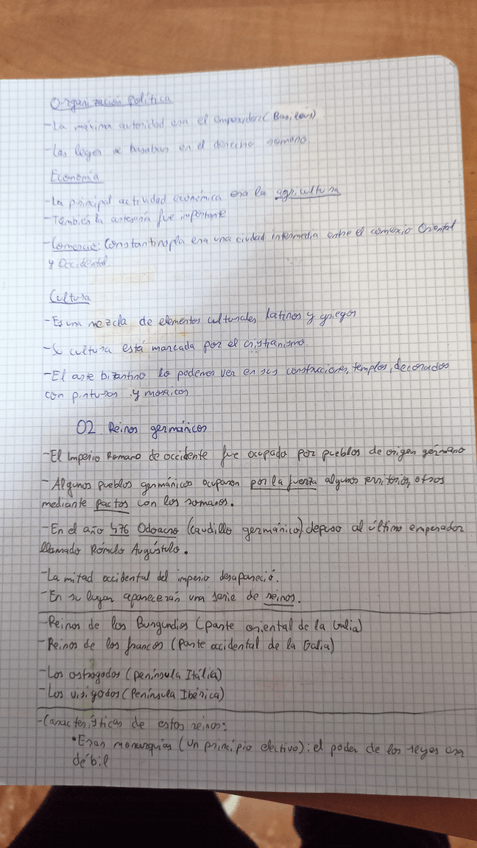 Organización política
-La máxima autoridad era el emperador (Basileus)
-Las leyes se basaban en el derecho romano.
Economía
-La principal actividad económica era la agricultura
-También la artesanía fue importante
-Comercio: Constantinopla era una ciudad intermedia entre el comercio Oriental
y Occidental
Cultura
-Es una mezcla de elementos culturales latinos y griegos
-Su cultura está marcada por el cristianismo.
-El arte bizantino lo podemos ver en sus construcciones, templos, decorados
con pinturas y mosaicos
02 Reinos germánicos
-El Imperio Romano de occidente fue ocupado por pueblos de origen germano
-Algunos pueblos germánicos ocuparon por la fuerza algunos territorios, otros
mediante pactos con los romanos.
-En el año 476 Odoacro (caudillo germánico) depuso al último emperador
llamado Rómulo Augústulo.
-La mitad occidental del imperio desapareció.
-En su lugar aparecerán una serie de reinos.
-Reinos de los Burgundios (parte oriental de la Galia)
-Reinos de los francos (Parte occidental de la Galia)
-Los ostrogodos (península Itálica)
-Los visigodos (Península Ibérica)
-Características de estos reinos:
•Eran monarquías (un principio electivo): el poder de los reyes era
débil